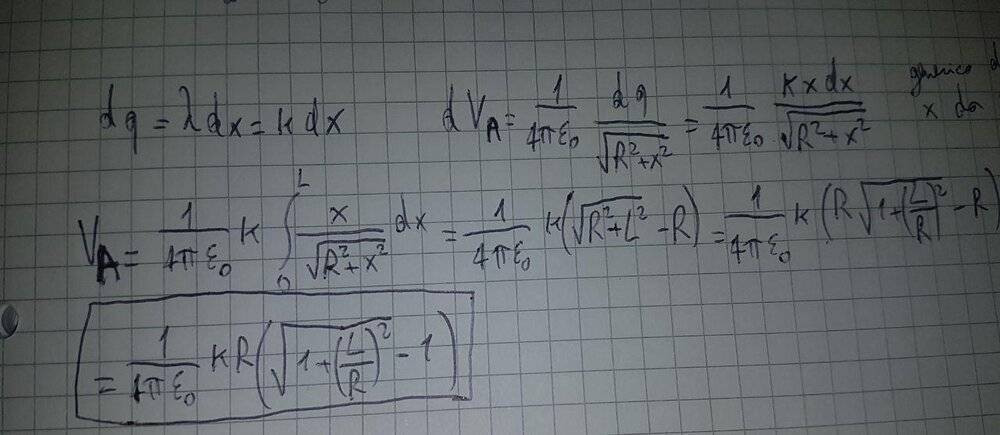 dq = λdx = k dx   dV_A = 1/(4πε₀) dq/√(R²+x²) = 1/(4πε₀) k x dx/√(R²+x²)
x
V_A = 1/(4πε₀) k ∫₀ᴸ x/√(R²+x²) dx = 1/(4πε₀) k(√(R²+L²) - R) = 1/(4πε₀) k (R√(1+(L/R)²) - R)
= 1/(4πε₀) kR(√(1+(L/R)²) - 1)